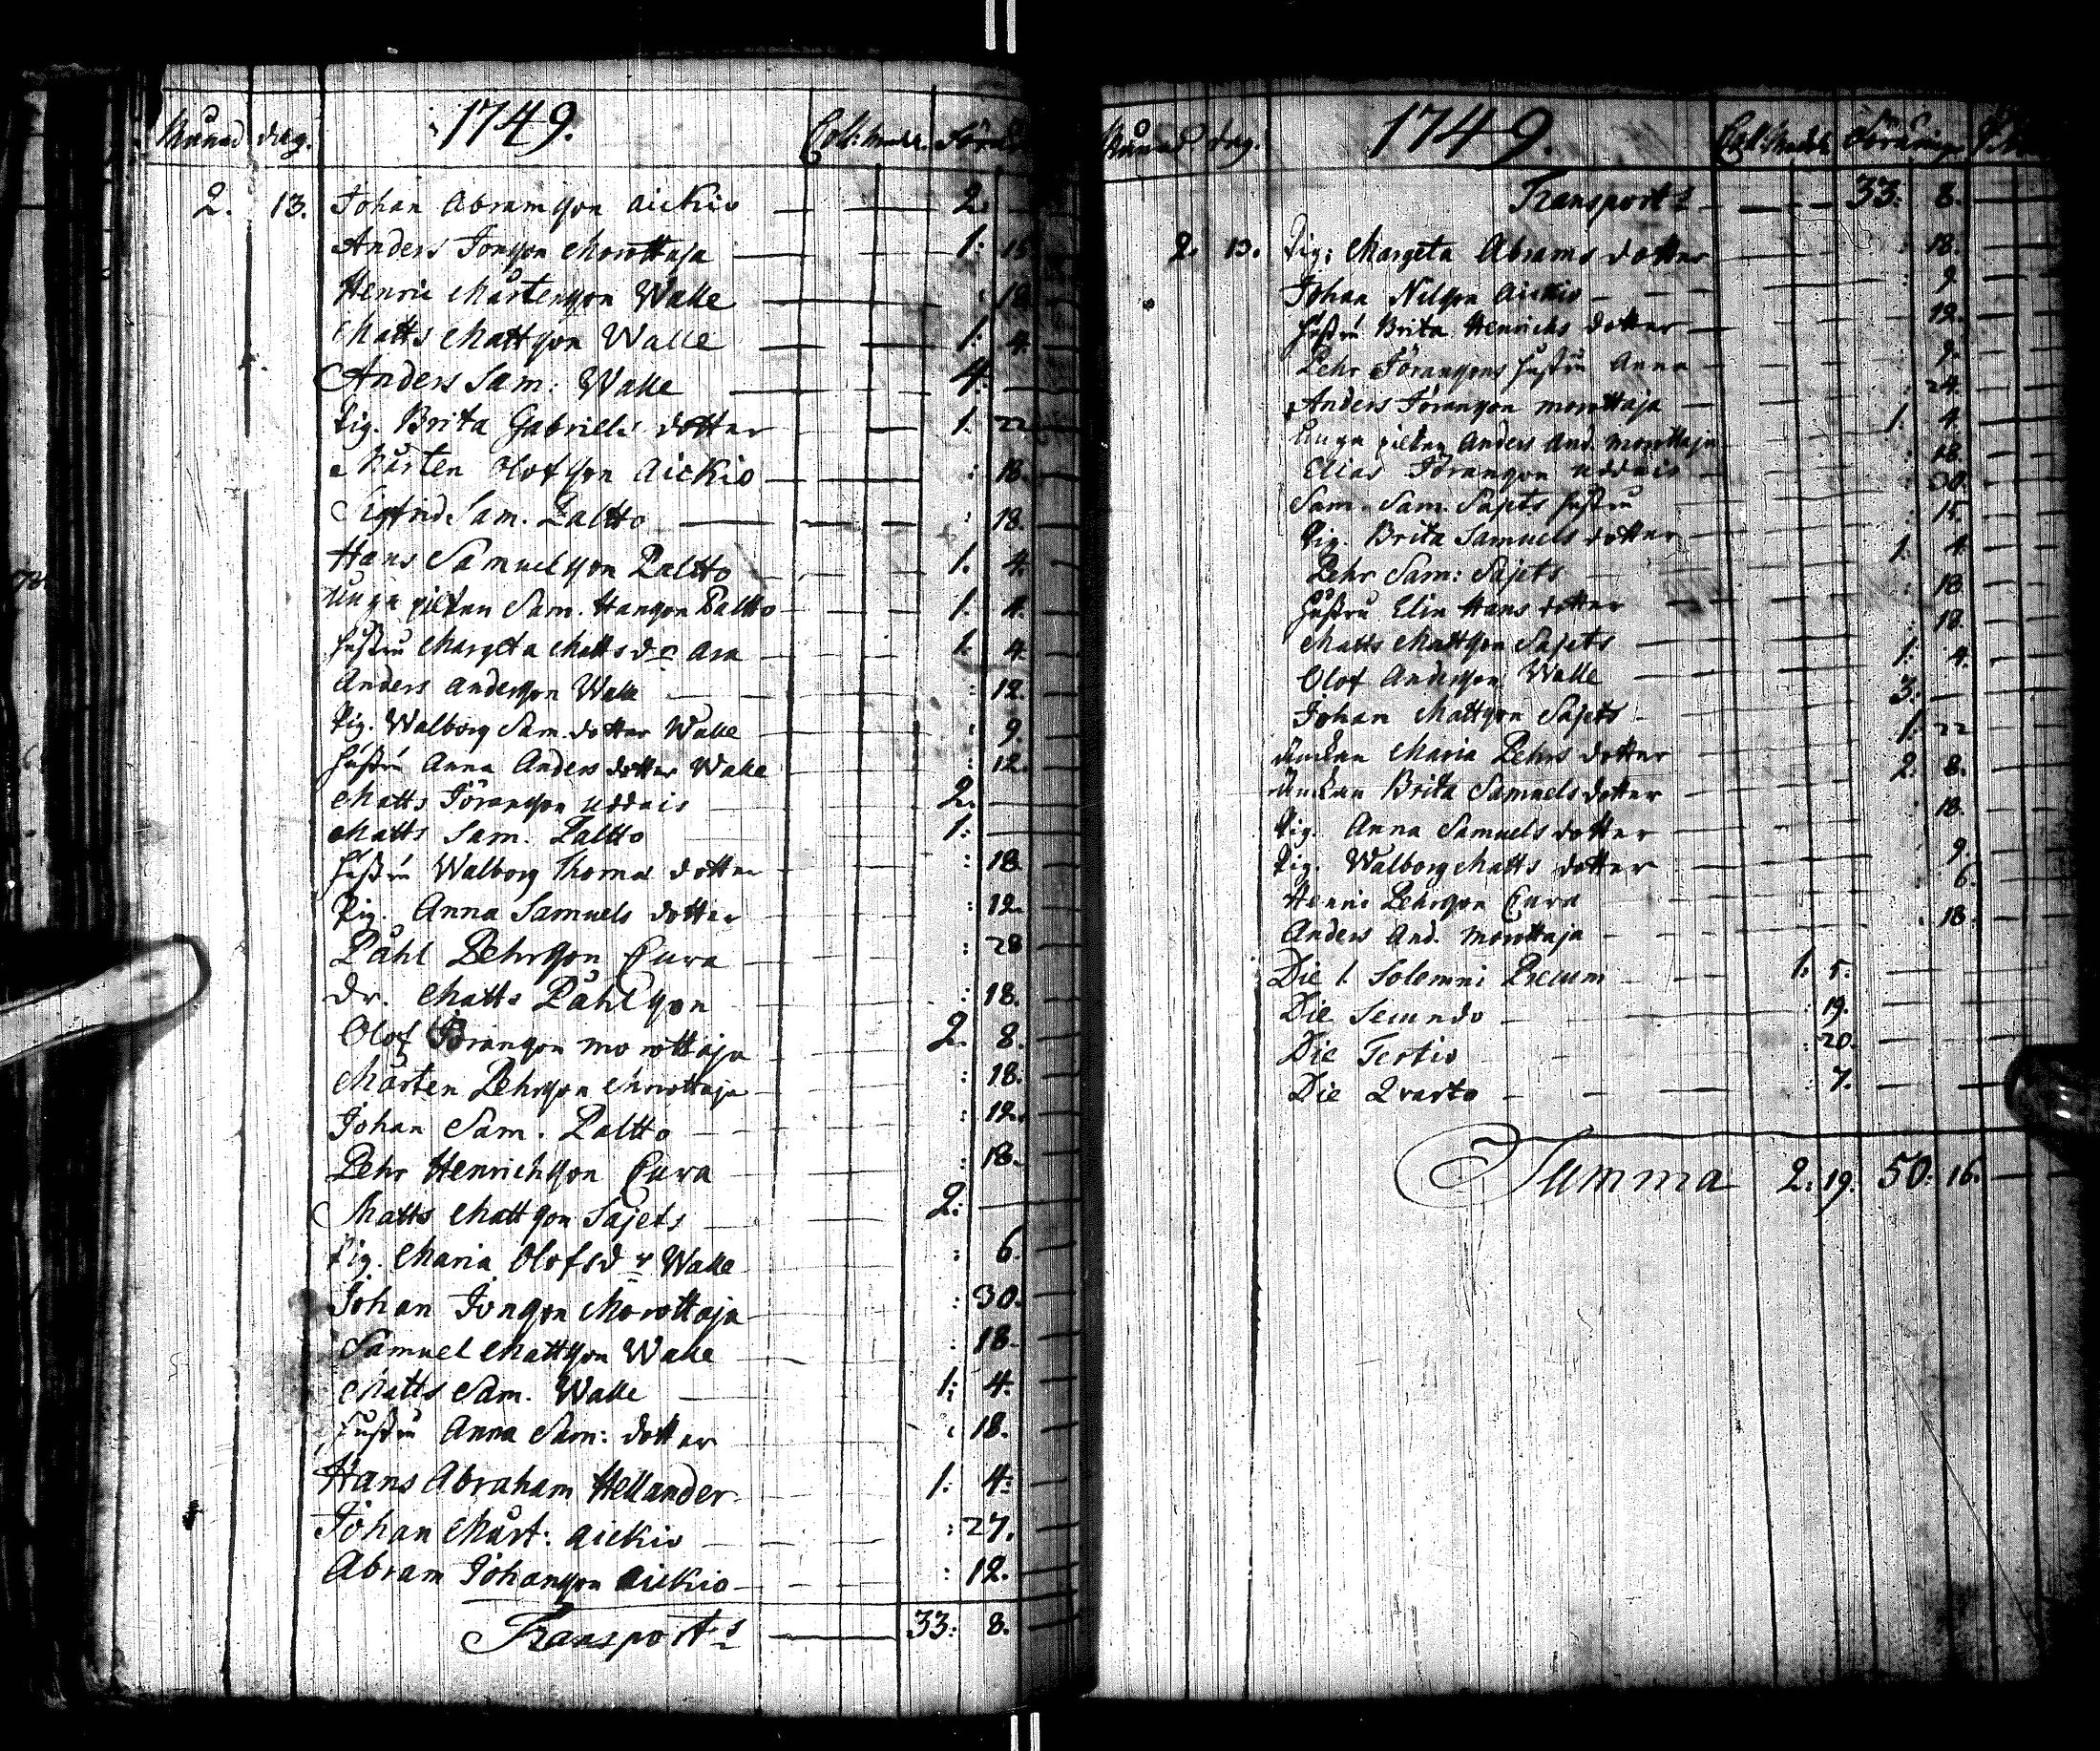 Månad dag. 1749. Coll: medl. Föräring
2. 13. Johan Abramsson Aickio — 2. —
Anders Jonsson Morottaja — 1: 15
Henric Mårtensson Walle — : 18
Matts Mattsson Walle — 1: 4.
Anders Sam: Walle — 4. —
Pig. Brita Gabriels dotter — 1. 22
Mårten Olofsson Aickio — : 18.
Sigfrid Sam. Paltto — : 18.
Hans Samuelsson Paltto — 1. 4.
Unga pilten Sam. Hansson Paltto — 1. 4.
Hustru Margeta Matts dr Ara — 1. 4.
Anders Andersson Walle — : 12.
Pig. Walborg Sam. dotter Walle — : 9.
Hustru Anna Anders dotter Walle — : 12.
Matts Jöransson Uddais — 2. —
Matts Sam. Paltto — 1: —
Hustru Walborg Thomas dotter — : 18.
Pig. Anna Samuels dotter — : 12.
Påhl Pehrsson Cura — : 28
Dr. Matts Påhlsson — : 18.
Olof Jöransson Morottaja — 2. 8.
Mårten Pehrsson Morottaja — : 18.
Johan Sam. Paltto — : 12.
Pehr Henrichsson Cura — : 18.
Matts Mattsson Sajets — 2: —
Pig. Maria Olofs dr Walle — : 6.
Johan Jonsson Morottaja — : 30.
Samuel Mattsson Walle — : 18.
Matts Sam. Walle — 1: 4.
Hustru Anna Sam: dotter — : 18.
Hans Abraham Hellander — 1: 4:
Johan Mårt: Aickio — : 27.
Abram Johansson Aickio — : 12.
Transport — 33: 8.
Månad dag. 1749. Coll: Medel Föräring
Transport — 33: 8.
2. 13. Pig: Margeta Abrams dotter — : 18.
Johan Nilsson Aickio — : 9
Hustru Brita Henrichs dotter — : 12.
Pehr Jöranssons hustru Anna — : 9.
Anders Jöransson Morottaja — : 24.
Unga pilten Anders And. Morottaja 1. 4.
Elias Jöransson Uddais — : 18.
Sam. Sam. Sajets hustru : 30.
Pig. Brita Samuels dotter — : 15.
Pehr Sam: Sajets — 1. 4
Hustru Elin Hans dotter — : 18
Matts Mattsson Sajets — : 18
Olof Andersson Walle — 1: 4.
Johan Mattsson Sajets — 3: —
änckan Maria Pehrs dotter — 1: 22
Änckan Brita Samuels dotter — 2. 8.
Pig. Anna Samuels dotter — : 18.
Pig. Walborg Matts dotter — : 9.
Henric Pehrsson Cura — : 6.
Anders And. Morottaja — : 18.
Die 1 Solemni Precum — 1. 5. —
Die Secundo — : 19. —
Die Tertio — : 20. —
Die Qvarto — : 7. —
Summa 2: 19. 50: 16. —